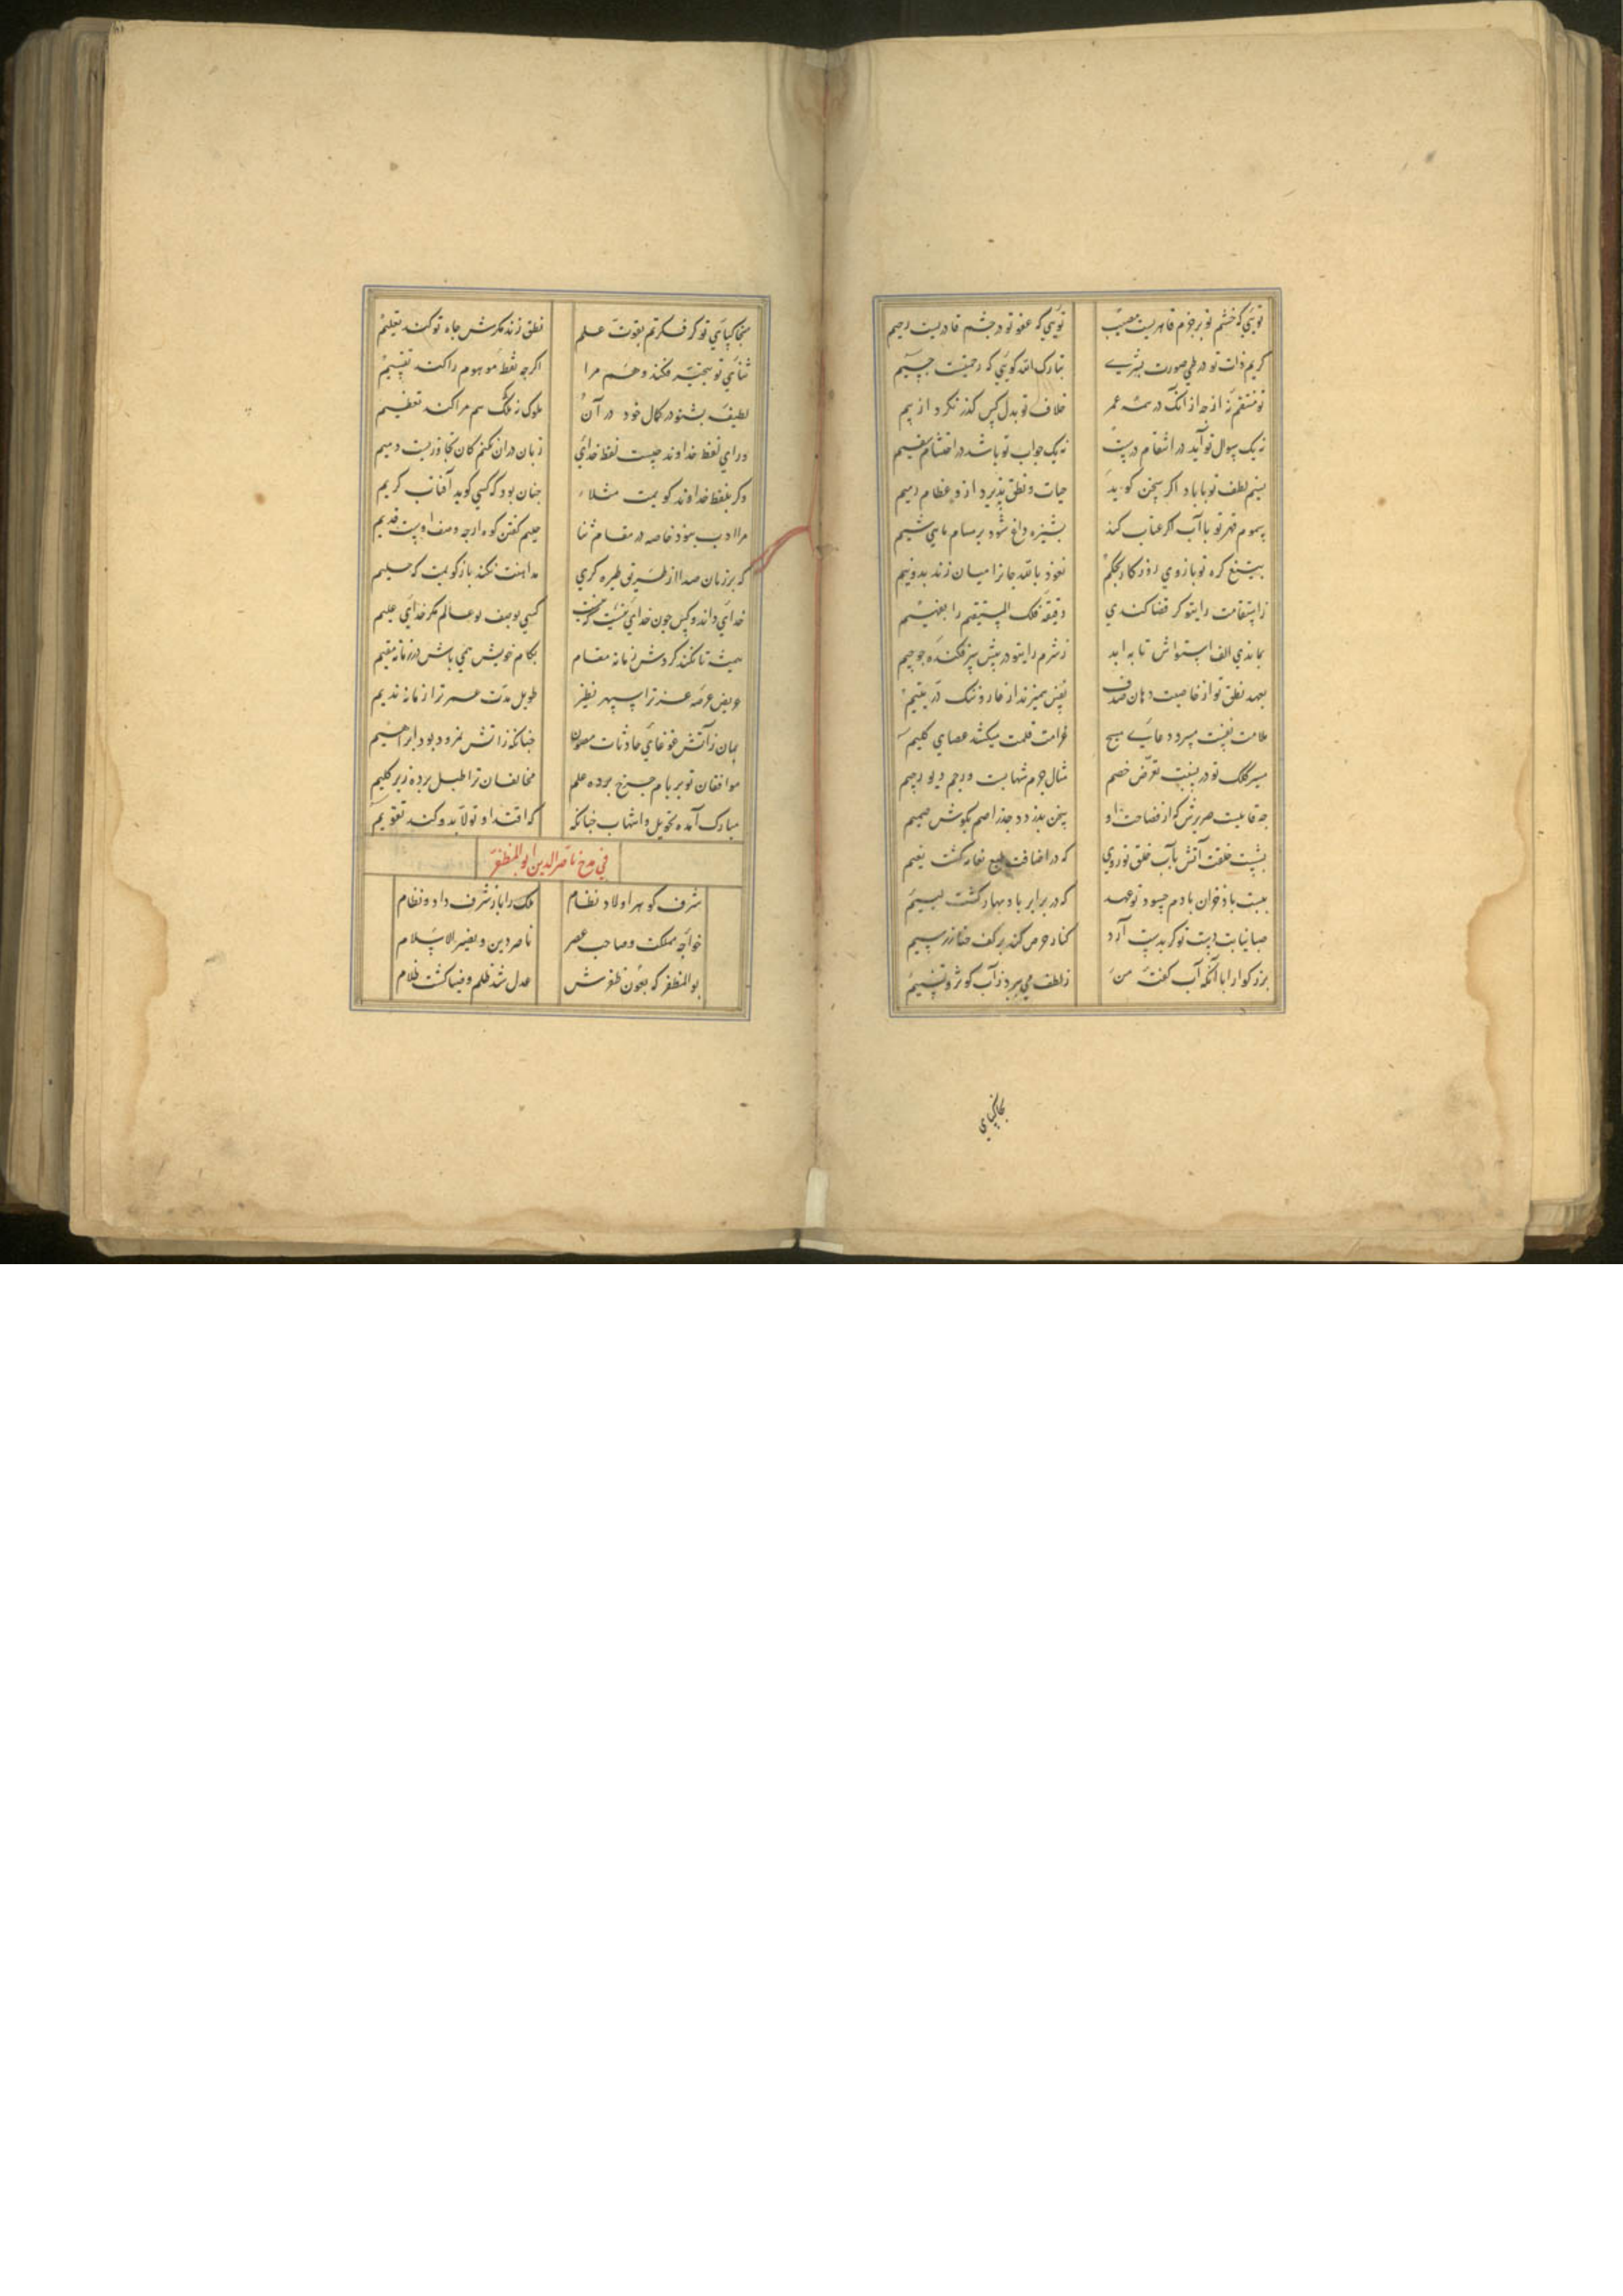 تویی که خشم تو بر جرم قاهریست مصیب تویی که عفو تو در خشم قادریست رحیم
کریم ذات تو در طی صورت بشری تبارک الله کویی که رحمتیست جسیم
تو منتقم نه از جه از انک در همه عمر خلاف تو بدل کس کذر نکرد از بیم
نه یک سوال تو آید در انتقام درست نه یک جواب تو باشد در احتشام سقیم
نسیم لطف تو با باد اکر سخن کوید حیات و نطق پذیرد ازو عظام رمیم
سموم قهر تو با آب اکر عتاب کند بشیزه داغ شود بر مسام ماهی شیم
بتیغ کره تو بازوی روزکار بحکم نعوذ بالله جانرا میان زند بدونیم
ز استقامت رایتو کر قضا کندی دقیقه فلک المستقیم را تقسیم
بماندی الف استواش تا به ابد ز شرم رایتو در پیش سر فکنده جو جیم
بعهد نطق تو از خاصیت دهان صدف نفس همیزند از خار و ننک در یتیم
علامت نفست میبرد دعای مسیح غرامت قلمت میکشد عصای کلیم
مسیر کلک تو در نسبت تعرض خصم مثال جرم شهابست و رجم دیو رجیم
جه قابلیست صریرش که از فصاحت او سخن بدزدد جذر اصم بکوش صمیم
بشست خلقت آتش بآب خلق تو روی که در اضافت طبع نعامه کشت نعیم
ببست باد خزان با دم حسود تو عهد که در برابر باد بهار کشت نسیم
صبا نیابت دست تو کر بدست آرد کنار حرص کند بر کف خنا زر و سیم
بزرکوارا با آنکه آب کفته من ز لطف می ببرد ز آب کوثر و تسنیم
بخاکپای
بخاکپای تو کر فکرتم بقوت علم نطق زند مکرش جاه تو کند تعلیم
ثنای تو نتخته فکند وهم مرا اکرجه نقطه موهوم را کند تقسیم
لطیفه بشنو در کمال خود در آن ملوک زملک هم مرا کند تعظیم
ورای لفظ خداوند جیست لفظ خدای زبان دران نکنم کان تجاوزیست ذمیم
وکر بلفظ خداوند کویمت مثلا جنان بود که کسی کوید آفتاب کریم
مرا ادب نبود خاصه در مقام ثنا حلیم کفتن کوه ارجه وصف اوست قدیم
که بر زبان صدا از طریق طیره کری مداهنت نکند باز کویمت که حلیم
خدای داند و کس جون خدای نیست کزین کسی بوصف تو عالم مکر خدای علیم
همیشه تا نکند کردش زمانه مقام بکام خویش همی باش در زمانه مقیم
عریض عرصه عز ترا سپهر نظیر طویل مدت عمر ترا زمانه ندیم
بمان ز آتش غوغای حادثات مصون جنانکه ز آتش نمرود بود ابراهیم
موافقان تو بر بام جرخ برده علم مخالفان ترا طبل برده زیر کلیم
مبارک آمده تحویل و انتهاب جنانکه که اقتدا و تولا بدو کند تقویم
فی مدح ناصرالدین ابوالمظفر
شرف کوهر اولاد نظام ملک را باز شرف داد و نظام
خواجه مملکت و صاحب عصر ناصر دین و نصیر الاسلام
بوالمظفر که بعون ظفرش عدل شد ظلم و ضیا کشت ظلام